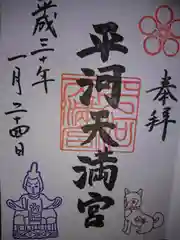 奉拝
平河天満宮
平成三十年
一月二十四日